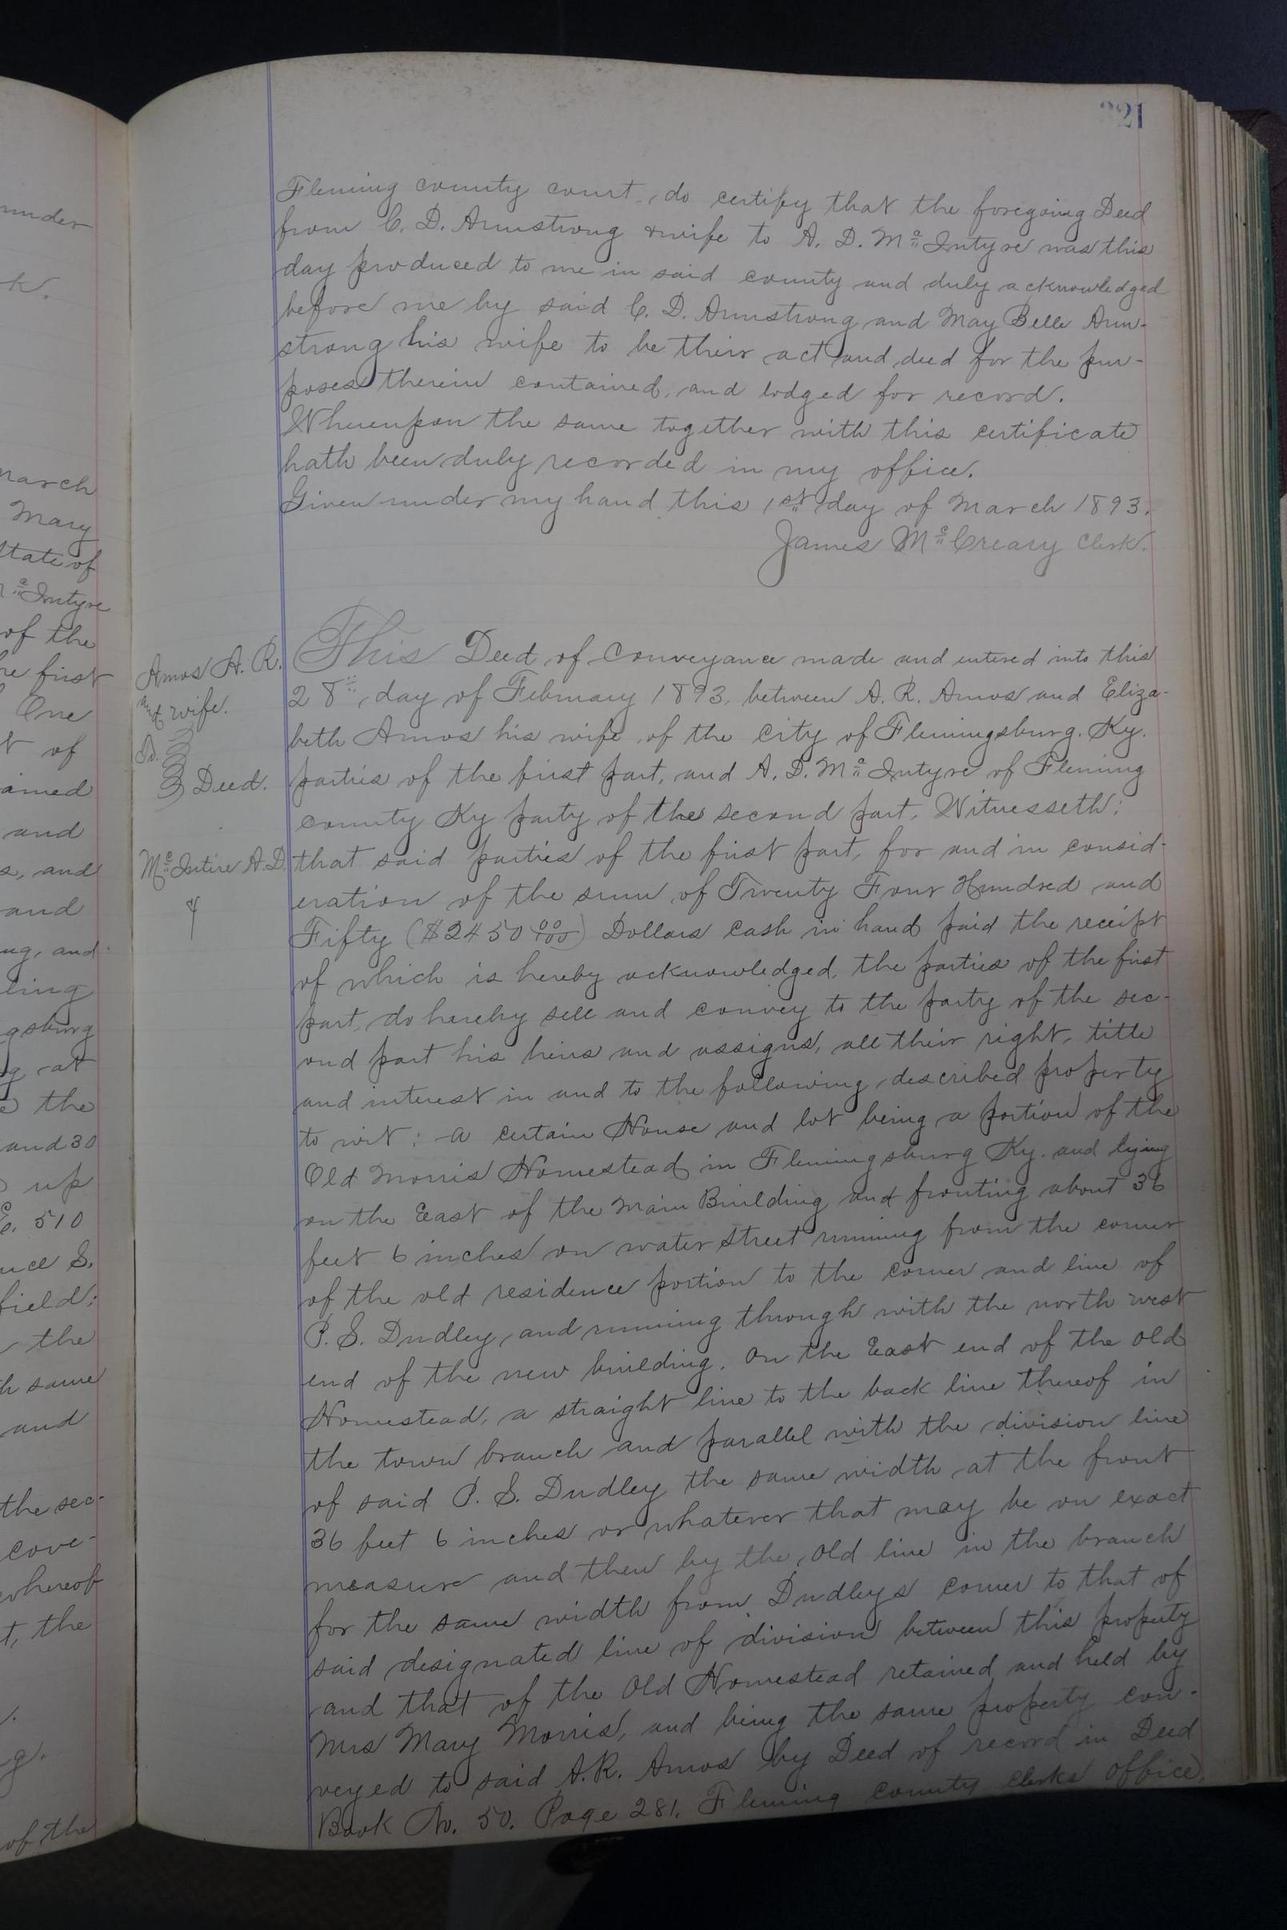 321
Fleming county court, do certify that the foregoing Deed
from C. D. Armstrong & wife to A. D. McIntyre was this
day produced to me in said county and duly acknowledged
before me by said C. D. Armstrong and May Belle Arm-
strong his wife to be their act and deed for the pur-
poses therein contained, and lodged for record.
Whereupon the same together with this certificate
hath been duly recorded in my office.
Given under my hand this 1st day of March 1893.
James McCreary Clerk.
Amos A. R.
& wife.
Deed.
McIntire A. D.
This Deed of Conveyance made and entered into this
28" day of February 1893, between A. R. Amos and Eliza-
beth Amos his wife of the city of Flemingsburg, Ky.
parties of the first part, and A. D. McIntyre of Fleming
county Ky party of the second part, Witnesseth:
that said parties of the first part, for and in consid-
eration of the sum of Twenty Four Hundred and
Fifty ($2450 00/100) Dollars cash in hand paid the receipt
of which is hereby acknowledged, the parties of the first
part, do hereby sell and convey to the party of the sec-
ond part his heirs and assigns, all their right, title
and interest in and to the following described property
to wit: a certain House and lot being a portion of the
Old Morris Homestead in Flemingsburg Ky. and lying
on the East of the Main Building and fronting about 36
feet 6 inches on water street running from the corner
of the old residence portion to the corner and line of
P. S. Dudley, and running through with the north west
end of the new building. On the East end of the Old
Homestead, a straight line to the back line thereof in
the town branch and parallel with the division line
of said P. S. Dudley the same width at the front
36 feet 6 inches or whatever that may be on exact
measure and then by the old line in the branch
for the same width from Dudleys corner to that of
said designated line of division between this property
and that of the Old Homestead retained and held by
Mrs Mary Morris, and being the same property con-
veyed to said A. R. Amos by Deed of record in Deed
Book No. 50. Page 281. Fleming County Clerks Office,
under
k.
March
Mary
State of
McIntyre
of the
he first
One
of
and
s, and
and
ng, and
gsburg
at
the
and 30
up
510
S.
field;
the
h same
and
the sec-
cove-
whereof
t, the
of the